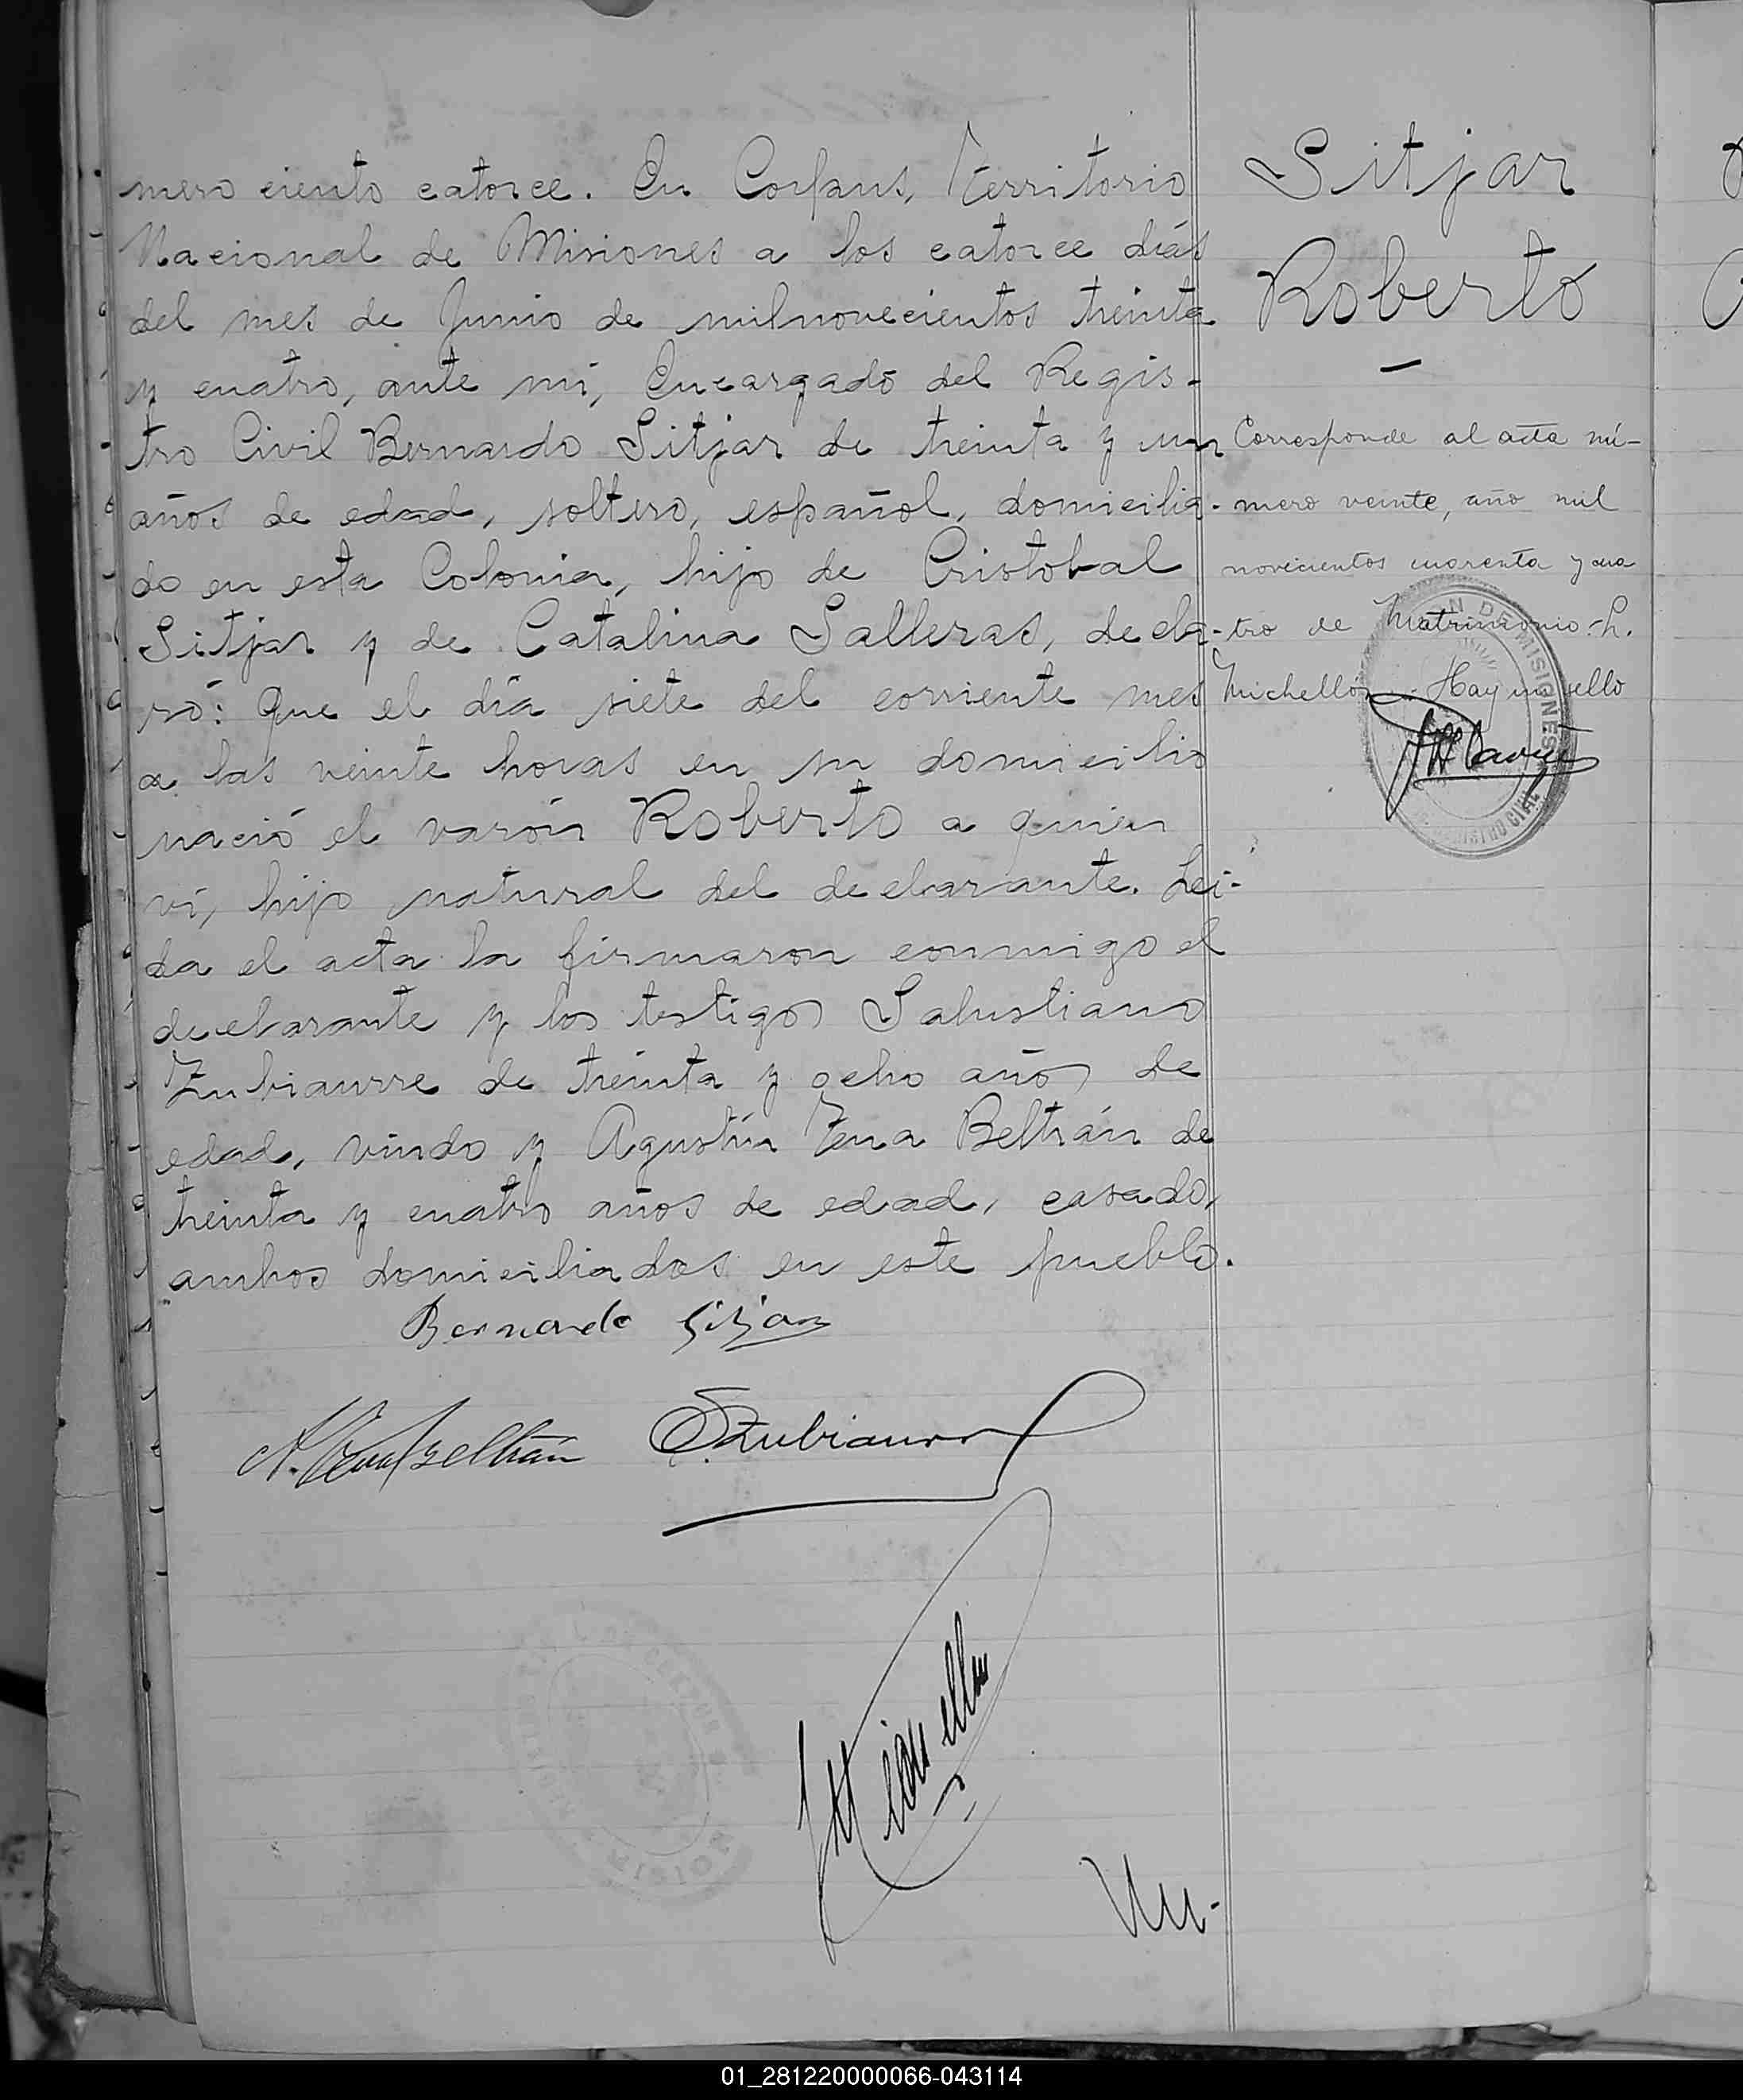 mero ciento catorce. En Corpus, Territorio
Nacional de Misiones a los catorce días
del mes de Junio de milnovecientos treinta
y cuatro, ante mí, Encargado del Regis-
tro Civil Bernardo Sitjar de treinta y un
años de edad, soltero, español, domicilia-
do en esta Colonia, hijo de Cristobal
Sitjar y de Catalina Salleras, decla-
ró: Que el día siete del corriente mes
a las veinte horas en su domicilio
nació el varón Roberto a quien
ví, hijo natural del declarante. Leí-
da el acta la firmaron conmigo el
declarante y los testigos Salustiano
Zubiaurre de treinta y ocho años de
edad, viudo y Agustín Tena Beltrán de
treinta y cuatro años de edad, casado,
ambos domiciliados en este pueblo.
Bernardo Sitjar
A. Tena Beltrán
S. Zubiaurre
Nu-
Sitjar
Roberto
Corresponde al acta nú-
mero veinte, año mil
novecientos cuarenta y cua
tro de Matrimonio. L.
Michelló. Hay un sello
DE MISIONES
REGISTRO CIVIL
01_281220000066-043114